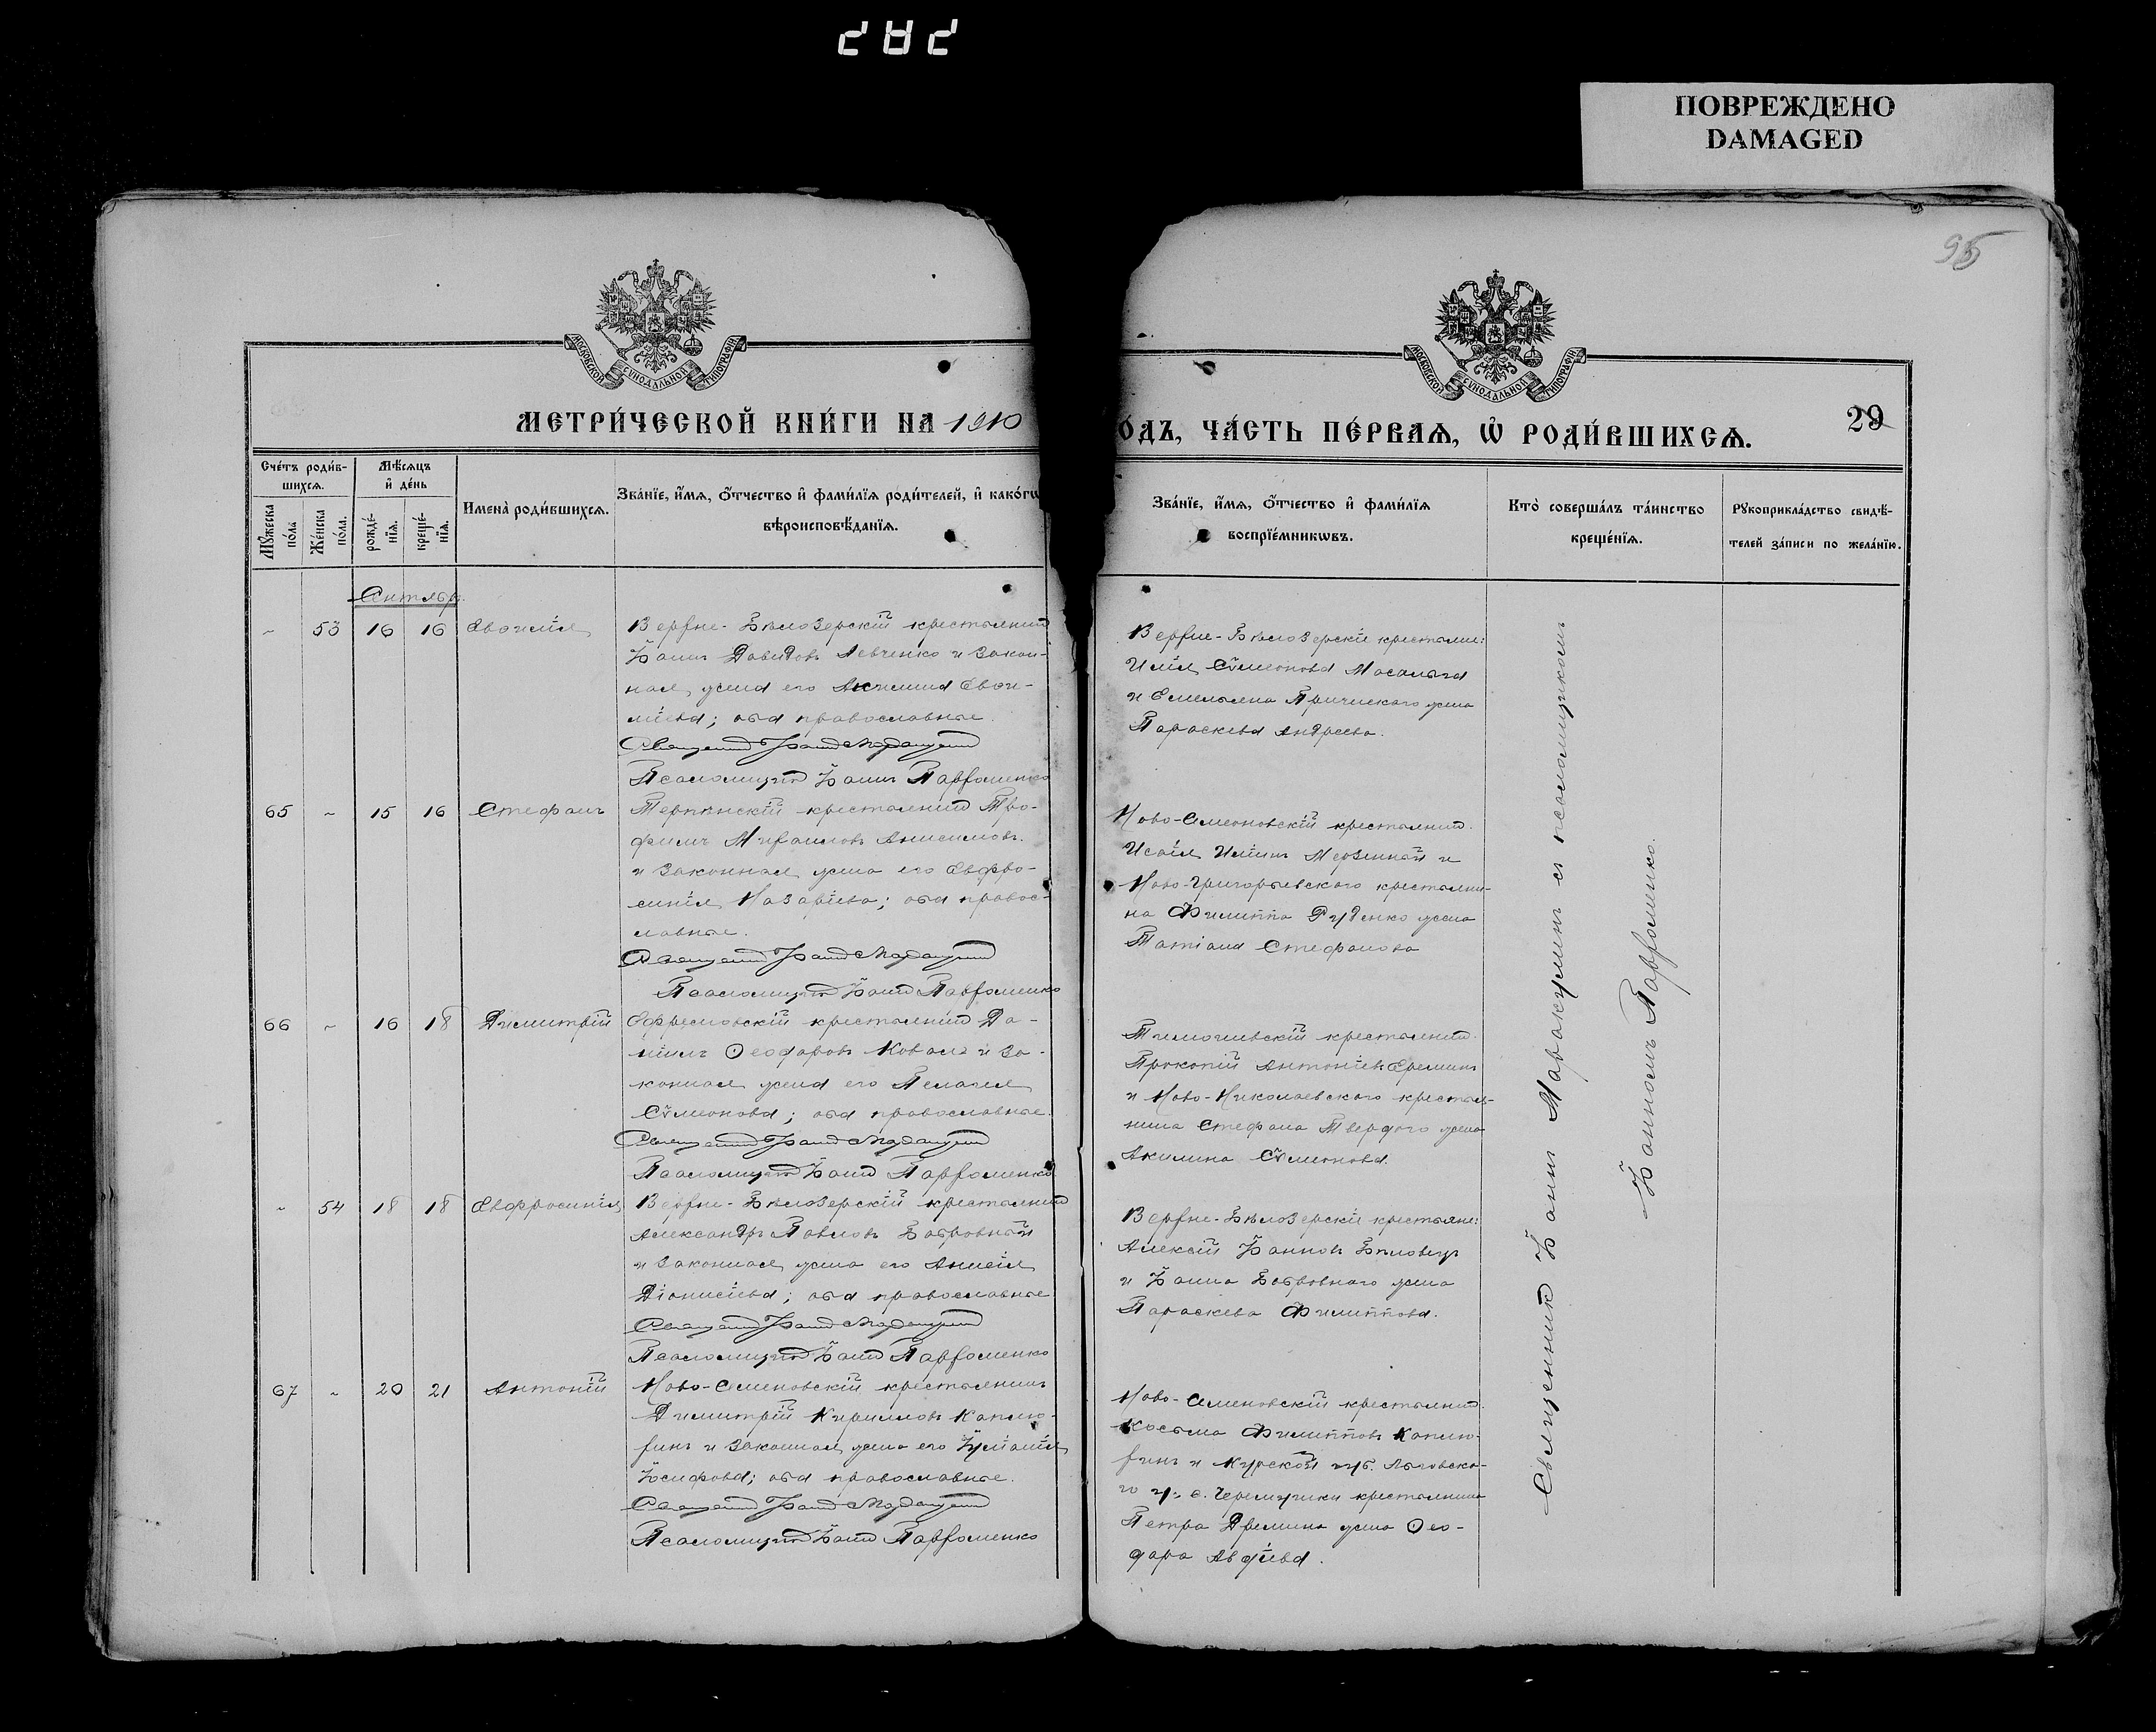 282
ПОВРЕЖДЕНО
DAMAGED
95
МОСКОВСКОЙ СУНОДАЛЬНОЙ ТИПОГРАФІИ
МОСКОВСКОЙ СУНОДАЛЬНОЙ ТИПОГРАФІИ
МЕТРИ́ЧЕСКОЙ КНИ́ГИ НА 1910
О́ДЪ, ЧА́СТЬ ПЕ́РВАѦ, Ѽ РОДИ́ВШИХСѦ.
29
Сче́тъ роди́в-
шихсѧ.
Мѣ́сѧцъ
и҆ де́нь
Мꙋ́жеска по́ла
Же́нска по́ла.
рожде́-нїѧ.
креще́-нїѧ.
Имена̀ роди́вшихсѧ.
Зва́нїе, и҆́мѧ, ѻ҆́тчество и҆ фами́лїѧ роди́телей, и҆ како́гѡ
вѣроисповѣ́данїѧ.
Зва́нїе, и҆́мѧ, ѻ҆́тчество и҆ фами́лїѧ
воспрїе́мникѡвъ.
Кто̀ соверша́лъ та́инство
креще́нїѧ.
Рꙋкоприкла́дство свидѣ́-
телей за́писи по жела́нїю.
Сентябр.
~ 53 16 16 Евѳимія
Верхне-Бѣлозерскій крестьянинъ
Іоаннъ Давидовъ Левченко и закон-
ная жена его Акилина Евѳи-
міева; оба православные.
Священникъ Іоаннъ
Псаломщикъ Іоаннъ Парфоменко
Верхне-Бѣлозерскіе крестьяне:
Илія Сѵмеоновъ Масалыга
и Емельяна жена
Параскева Андреева.
65 ~ 15 16 Стефанъ
Терпѣнскій крестьянинъ Тро-
фимъ Михаиловъ Анисимовъ
и законная жена его Евфро-
синія Назаріева; оба правос-
лавные.
Священникъ Іоаннъ
Псаломщикъ Іоаннъ Парфоменко
Ново-Семеновскій крестьянинъ
Исаія Иліинъ и
Ново-Григорьевскаго крестьяни-
на Филиппа Руденко жена
Татіана Стефанова
66 ~ 16 18 Димитрій
Ефремовскій крестьянинъ Да-
ніилъ Ѳеодоровъ Коваль и за-
конная жена его Пелагея
Сѵмеонова; оба православные.
Священникъ Іоаннъ
Псаломщикъ Іоаннъ Парфоменко
Тимошевскій крестьянинъ
Прокопій Антоніевъ Ереминъ
и Ново-Николаевскаго крестья-
нина Стефана Твердого жена
Акилина Сѵмеонова.
~ 54 18 18 Евфросинія
Верхне-Бѣлозерскій крестьянинъ
Александръ Павловъ Бобровный
и законная жена его Анисія
Діонисіева; оба православные
Священникъ Іоаннъ
Псаломщикъ Іоаннъ Парфоменко
Верхне-Бѣлозерскіе крестьяне:
Алексій Іоанновъ
и Іоанна Бобровнаго жена
Параскева Филиппова.
67 ~ 20 21 Антоній
Ново-Семеновскій крестьянинъ
Димитрій Кирилловъ Каплю-
хинъ и законная жена его Іуліанія
Іосифова; оба православные.
Священникъ Іоаннъ
Псаломщикъ Іоаннъ Парфоменко
Ново-Семеновскій крестьянинъ
Косьма Филипповъ Каплю-
хинъ и Курской губ. Льговска-
го у. с. Черемушки крестьянина
Петра Дремина жена Ѳео-
дора Авдіева.
Священникъ Іоаннъ съ псаломщикомъ
Іоанномъ Парфоменко.